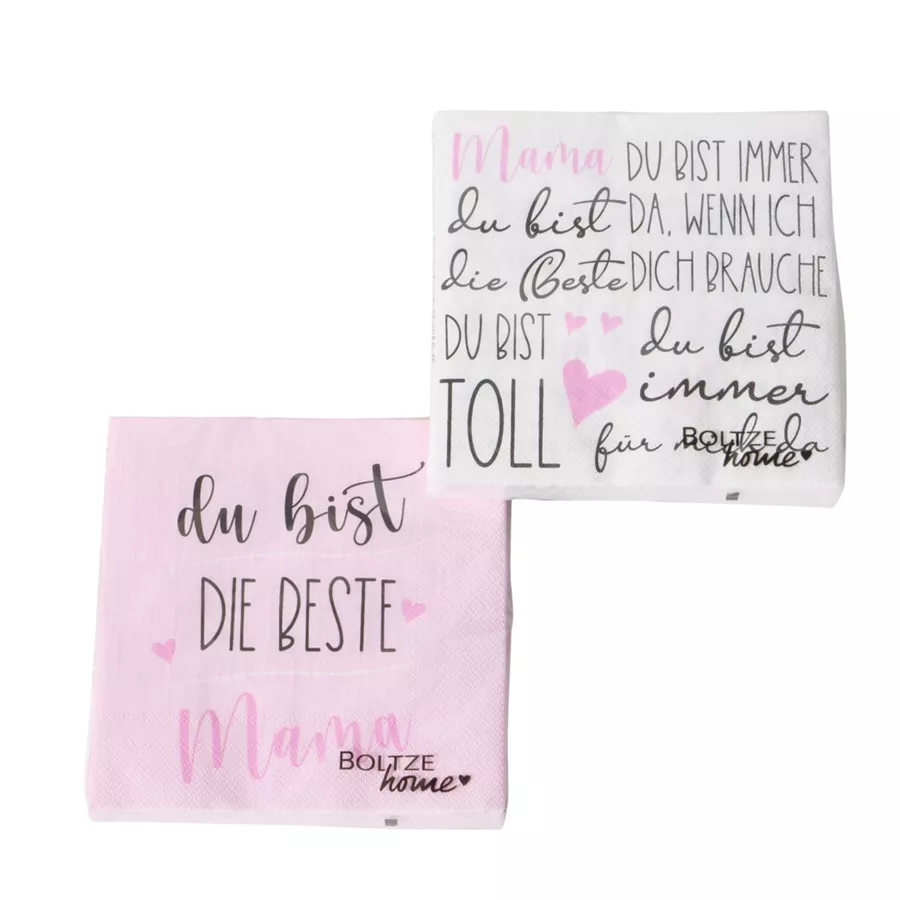 Mama
du bist
die Beste
DU BIST
TOLL
DU BIST IMMER
DA, WENN ICH
DICH BRAUCHE
du bist
immer
für mich da
BOLTZE
home
du bist
DIE BESTE
Mama
BOLTZE
home